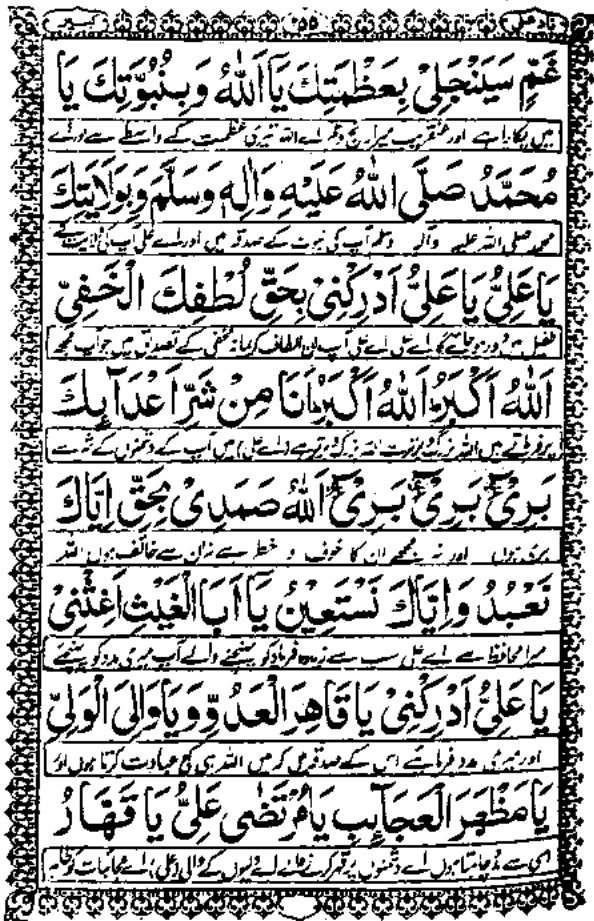 ناد علی ۲۵۵ کبیر
غَمٍّ سَيَنْجَلِىْ بِعَظْمَتِكَ يَا اَللّٰهُ وَبِنُبُوَّتِكَ يَا
میں پکارا ہے اور عنقریب میرا رنج و غم اے اللہ تیری عظمت کے واسطے سے اور اے
مُحَمَّدُ صَلَّى اللّٰهُ عَلَيْهِ وَاٰلِهٖ وَسَلَّمَ وَبِوَلَايَتِكَ
محمد صلی اللہ علیہ وآلہ وسلم آپ کی نبوت کے صدقہ میں اور اے علی آپ کی ولایت کے
يَاعَلِىُّ يَاعَلِىُّ اَدْرِكْنِىْ بِحَقِّ لُطْفِكَ الْخَفِىِّ
طفیل میں دور ہو جائے گا اے علی اے علی آپ ان الطاف کریمانہ مخفی کے تصدق میں جو آپ مجھ
اَللّٰهُ اَكْبَرُ اَللّٰهُ اَكْبَرُ اَنَا مِنْ شَرِّ اَعْدَآئِكَ
پر فرماتے ہیں اللہ بزرگ و برتر ہے اللہ بزرگ و برتر ہے (اے علی) میں آپ کے دشمنوں کے شر سے
بَرِىْٓءٌ بَرِىْٓءٌ بَرِىْٓءٌ اَللّٰهُ صَمَدِىْ بِحَقِّ اِيَّاكَ
بری ہوں اور نہ مجھے ان کا خوف و خطر ہے نہ ان سے خائف ہوں اللہ
نَعْبُدُ وَاِيَّاكَ نَسْتَعِيْنُ يَآ اَبَا الْغَيْثِ اَغِثْنِىْ
میرا محافظ ہے اے علی سب سے زیادہ فریاد کو پہنچنے والے آپ میری مدد کو پہنچئے
يَاعَلِىُّ اَدْرِكْنِىْ يَاقَاهِرَ الْعَدُوِّ وَيَاوَالِىَ الْوَلِىِّ
اور میری مدد فرمائیے اس کے صدقہ میں کہ میں اللہ ہی کی عبادت کرتا ہوں اور
يَامَظْهَرَ الْعَجَآئِبِ يَامُرْتَضٰى عَلِىُّ يَاقَهَّارُ
اسی سے مدد چاہتا ہوں اے دشمنوں پر قہر کرنے والے اے ولیوں کے والی (علی) اے عجائبات کو